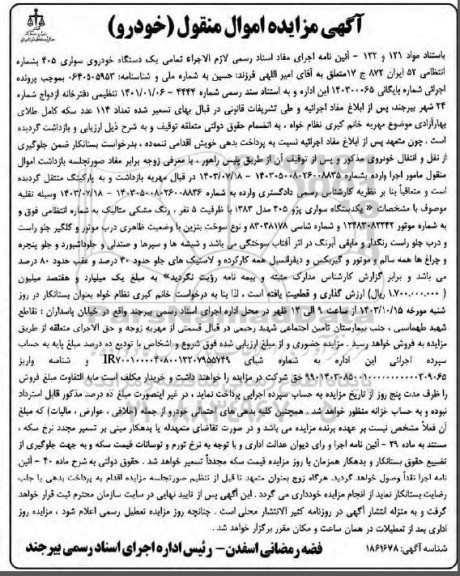 آگهی مزایده اموال منقول (خودرو)
باستناد مواد ۱۲۱ و ۱۲۲ - آئین نامه اجرای مفاد اسناد رسمی لازم الاجراء تمامی یک دستگاه خودروی سواری ۴۰۵ بشماره
انتظامی ۵۲ ایران ۸۷۲ ج ۱۷ متعلق به آقای امیر اللهی فرزند: حسین به شماره ملی و شناسنامه: ۰۶۴۰۵۰۵۹۵۳ بموجب پرونده
اجرائی شماره بایگانی ۱۴۰۳۰۰۰۶۵ این اداره و به استناد سند رسمی شماره ۴۴۴۴ - ۱۴۰۱/۰۱/۰۶ تنظیمی دفترخانه ازدواج شماره
۲۴ شهر بیرجند، پس از ابلاغ مفاد اجرائیه و طی تشریفات قانونی در قبال بهای تسعیر شده تعداد ۱۱۴ عدد سکه کامل طلای
بهارآزادی موضوع مهریه خانم کبری نظام خواه ، به انضمام حقوق دولتی متعلقه توقیف و به شرح ذیل ارزیابی و بازداشت گردیده
است . چون متعهد پس از ابلاغ مفاد اجرائیه نسبت به پرداخت بدهی خویش اقدامی ننموده ، بدرخواست بستانکار ضمن جلوگیری
از نقل و انتقال خودروی مذکور و پس از توقیف آن از طریق پلیس راهور ، با معرفی زوجه برابر مفاد صورتجلسه بازداشت اموال
منقول مامور اجرا وارده بشماره ۱۴۰۳۰۵۰۰۸۰۲۶۰۰۸۸۳۵ - ۱۴۰۳/۰۷/۱۸ در قبال مهریه بازداشت و به پارکینگ منتقل گردیده
است و متعاقباً بنا بر نظریه کارشناس رسمی دادگستری وارده به شماره ۱۴۰۳۰۵۰۰۸۰۲۶۰۰۸۸۳۶ - ۱۴۰۳/۰۷/۱۸ وسیله نقلیه
موصوف با مشخصات « یکدستگاه سواری پژو ۴۰۵ مدل ۱۳۸۳ با ظرفیت ۵ نفر ، رنگ مشکی متالیک به شماره انتظامی فوق و
به شماره موتور ۱۲۴۸۳۰۸۲۳۴۲ و شماره شاسی ۸۳۰۳۸۱۷۸ و نوع سوخت بنزین با وضعیت ظاهری درب موتور و گلگیر جلو راست
و درب جلو راست رنگدار و مابقی آبرنگ در اثر آفتاب سوختگی می باشد و شیشه ها و سپرها و صندلی و جلوداشبورد و جلو پنجره
و چراغ ها همه سالم و موتور و گیربکس و دیفرانسیل همه کارکرده و لاستیک های جلو حدود ۳۰ درصد و عقب حدود ۸۰ درصد
می باشد و برابر گزارش کارشناس مدارک مثبته و بیمه نامه رؤیت نگردید» به مبلغ یک میلیارد و هفتصد میلیون
(۱.۷۰۰.۰۰۰.۰۰۰ ریال) ارزش گذاری و قطعیت یافته است ، لذا بنا به درخواست خانم کبری نظام خواه بعنوان بستانکار در روز
شنبه مورخه ۱۴۰۳/۱۰/۱۵ از ساعت ۹ الی ۱۲ ظهر در محل اداره اجرای اسناد رسمی بیرجند واقع در خیابان پاسداران ؛ تقاطع
شهید طهماسبی ، جنب بیمارستان تامین اجتماعی شهید رحیمی در قبال قسمتی از مهریه زوجه و حق الاجرای متعلقه از طریق
مزایده به فروش خواهد رسید . مزایده حضوری و از مبلغ ارزیابی شده فوق شروع و اشخاص با تودیع ده درصد مبلغ پایه به حساب
سپرده اجرائی این اداره به شماره شبای و شناسه واریز
حق شرکت در مزایده را خواهند داشت و خریدار مکلف است مابه التفاوت مبلغ فروش
را ظرف مدت پنج روز از تاریخ مزایده به حساب سپرده اجرایی پرداخت نماید ، در غیر اینصورت مبلغ ده درصد مذکور قابل استرداد
نبوده و به حساب خزانه منظور خواهد شد . همچنین کلیه بدهی های احتمالی خودرو از جمله (خلافی ، عوارض ، مالیات) که مبلغ
آن فعلاً مشخص نیست بر عهده برنده مزایده می باشد و در صورت تقاضای متعهدله یا بدهکار مبنی بر تسعیر مجدد نرخ سکه ،
مستند به ماده ۳۹ - آئین نامه اجرا و رای دیوان عدالت اداری و با توجه به نرخ تورم و نوسانات قیمت سکه و به جهت جلوگیری از
تضییع حقوق بستانکار و بدهکار همزمان با روز مزایده قیمت سکه مجدداً تسعیر خواهد شد . حقوق دولتی به شرح ماده ۴۰ - آئین
نامه اجرا نقداً وصول خواهد گردید. هرگاه زوج بعنوان متعهد تا قبل از تنظیم صورتجلسه مزایده اقدام به پرداخت بدهی یا جلب
رضایت بستانکار نماید از انجام مزایده خودداری می گردد . این آگهی پس از تایید نهایی در سایت سازمان محترم ثبت قرار خواهد
گرفت و به منزله انتشار آگهی در روزنامه کثیر الانتشار محلی است . چنانچه روز مزایده تعطیل رسمی اعلام شود ، مزایده روز
اداری بعد از تعطیلات در همان ساعت و مکان مقرر برگزار خواهد شد .
شناسه آگهی: ۱۸۶۱۶۷۸ فضه رمضانی اسفدن- رئیس اداره اجرای اسناد رسمی بیرجند